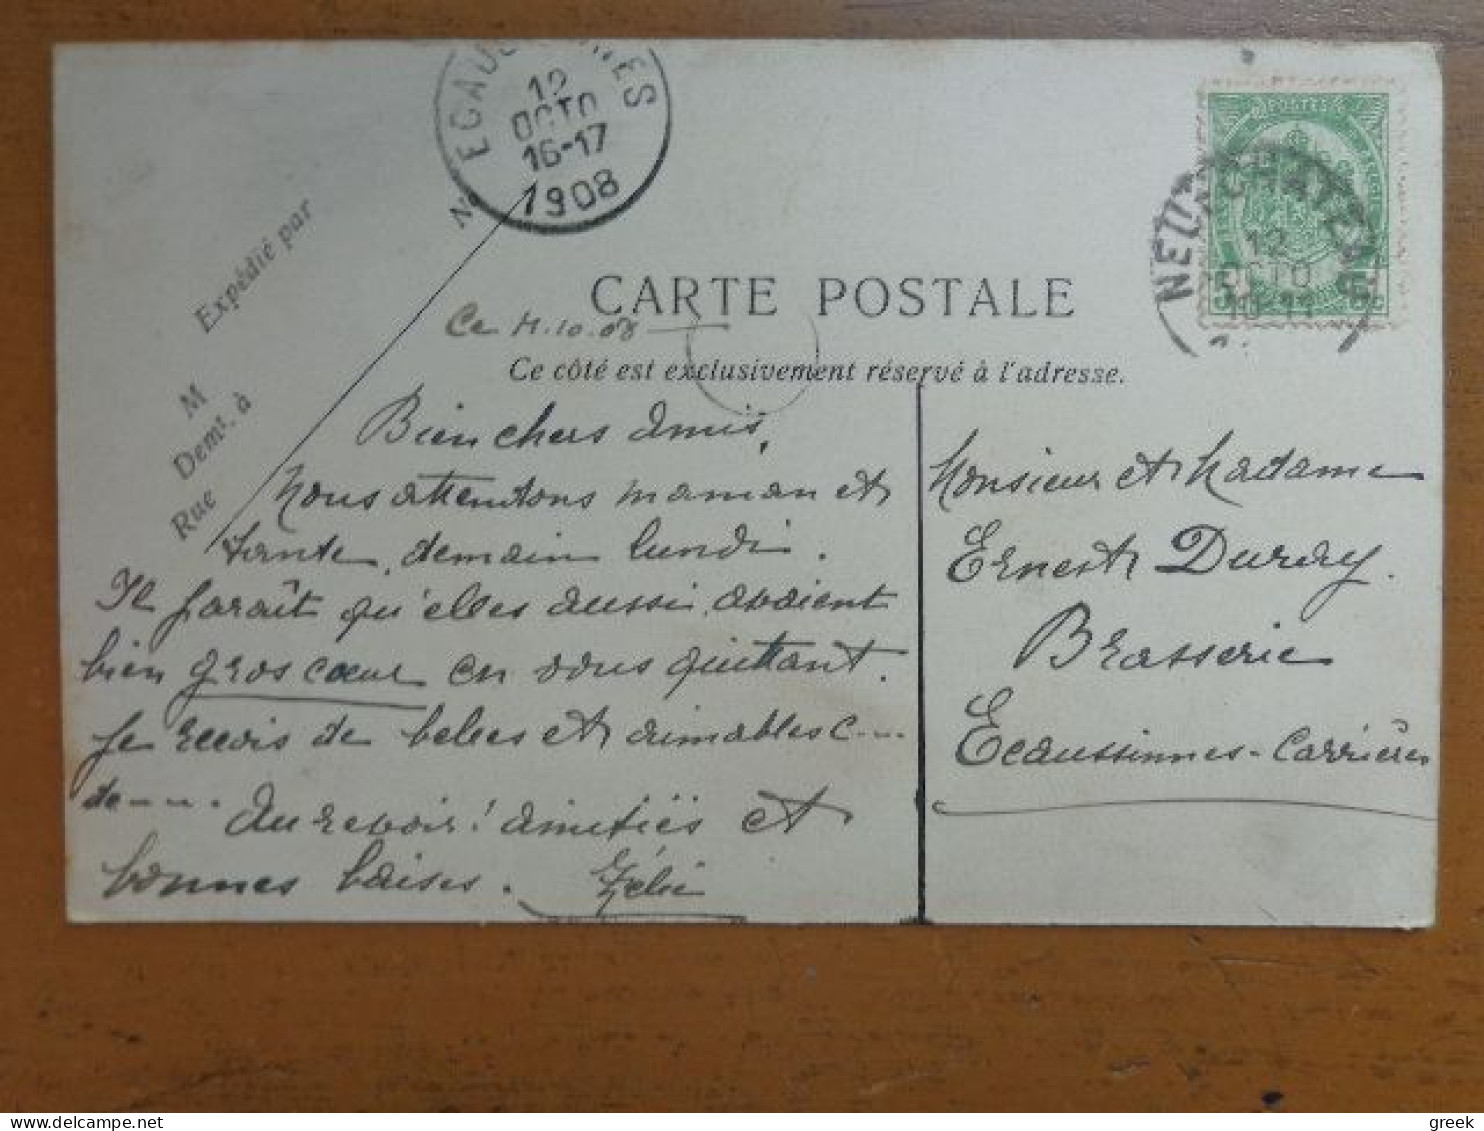 ECAUSSINNES
12
OCTO
16-17
1908
Nº
POSTES
12
OCTO
Expédié par
M
Demt. à
Rue
CARTE POSTALE
Ce 11.10.08
Ce côté est exclusivement réservé à l'adresse.
Bien chers amis,
Nous attendons maman et
tante, demain lundi.
Il paraît qu'elles aussi, avaient
bien gros cœur en vous quittant.
Je reçois de belles et aimables C---
de---.
Au revoir! amitiés et
bonnes baises.
Monsieur et Madame
Ernest Duray.
Brasserie
Ecaussinnes-Carrières
greek